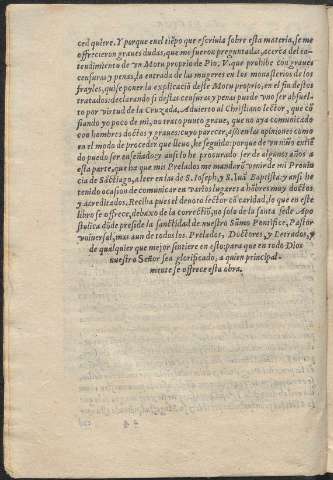 ced quiere. Y porque en el tiēpo que escriuia sobre esta materia, se me
offrecieron graues dudas, que me fueron preguntadas, acerca del en-
tendimiento de vn Motu proprio de Pio. V. que prohibe con graues
censuras y penas, la entrada de las mugeres en los monasterios de los
frayles, quise poner la explicaciō deste Motu proprio, en el fin destos
tratados: declarando si destas censuras y penas puede vno ser absuel-
to por virtud de la Cruzada. Aduierto al Christiano lector, que cō
fiando yo poco de mi, no trato punto graue, que no aya comunicado
con hombres doctos y graues: cuyo parecer, assi en las opiniones como
en el modo de proceder que lleuo, he seguido: porque de vn niño entiē
do puedo ser enseñado: y assi lo he procurado ser de algunos años a
esta parte, que ha que mis Prelados me mandarō venir de mi Prouin
cia de Sāctiago, a leer en las de S. Ioseph, y S. Iuā Baptista: y assi he
tenido ocasion de comunicar en varios lugares a hōbres muy doctos
y acreditados. Reciba pues el deuoto lector cō caridad, lo que en este
libro se offrece, debaxo de la correctiō, no solo de la santa sede Apo
stolica dōde preside la sanctidad de nuestro Sūmo Pontifice, Pastor
vniuersal, mas aun de todos los Prelados, Doctores, y Letrados, y
de qualquier que mejor sintiere en esto: para que en todo Dios
nuestro Señor sea glorificado, a quien principal-
mente se offrece esta obra.